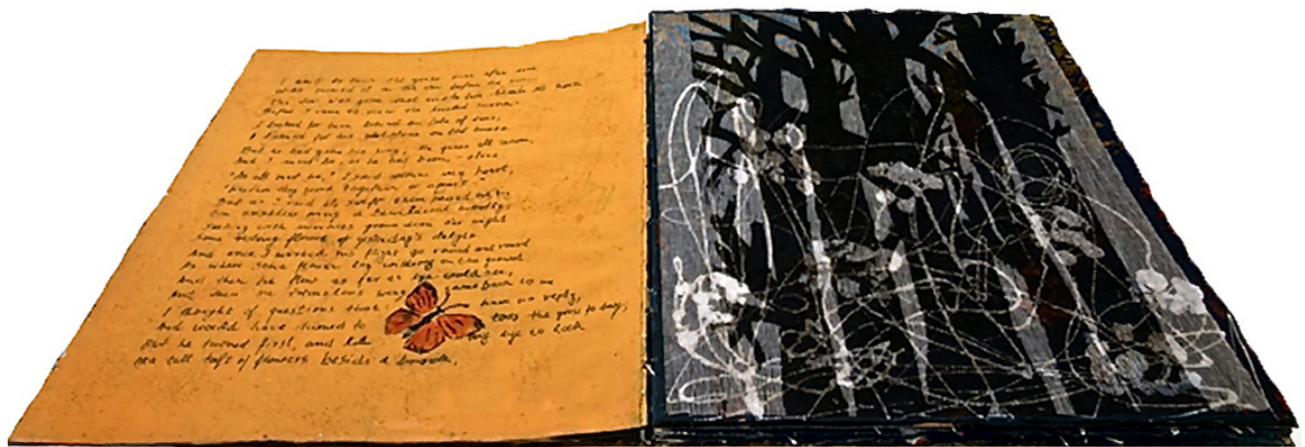 I went to turn the grass once after one
Who mowed it in the dew before the sun.
The dew was gone that made his blade so keen
Before I came to view the levelled scene.
I looked for him behind an isle of trees;
I listened for his whetstone on the breeze
But he had gone his way, the grass all mown,
And I must be, as he had been, - alone,
"As all must be," I said within my heart,
"Whether they work together or apart."
But as I said it, swift there passed me by
On noiseless wing a bewildered butterfly,
Seeking with memories grown dim o'er night
Some resting flower of yesterday's delight
And once I marked his flight go round and round
As where some flower lay withering on the ground.
And then he flew as far as eye could see,
And then on tremulous wing came back to me
I thought of questions that have no reply,
And would have turned to toss the grass to dry;
But he turned first, and led my eye to look
At a tall tuft of flowers beside a